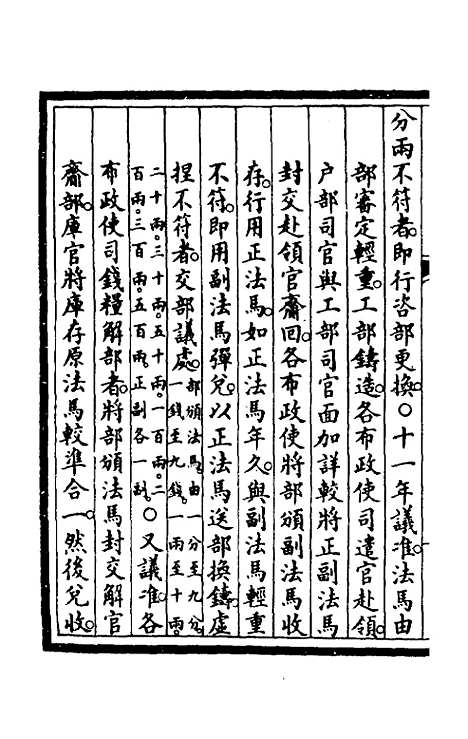 分兩不符者。即行咨部更換。○十一年議准。法馬由
部審定輕重。工部鑄造。各布政使司遣官赴領。
户部司官與工部司官面加詳較。將正副法馬
封交赴領官齎回。各布政使將部頒副法馬收
存。行用正法馬。如正法馬年久。與副法馬輕重
不符。即用副法馬彈兌。以正法馬送部換鑄。虛
捏不符者。交部議處。部頒法馬。由一分至九分。一錢至九錢。一兩至十兩。
二十兩。三十兩。五十兩。一百兩。二百兩。三百兩。五百兩。正副各一副。○又議准。各
布政使司錢糧解部者。將部頒法馬封交解官
齎部。庫官將庫存原法馬較準合一。然後兌收。